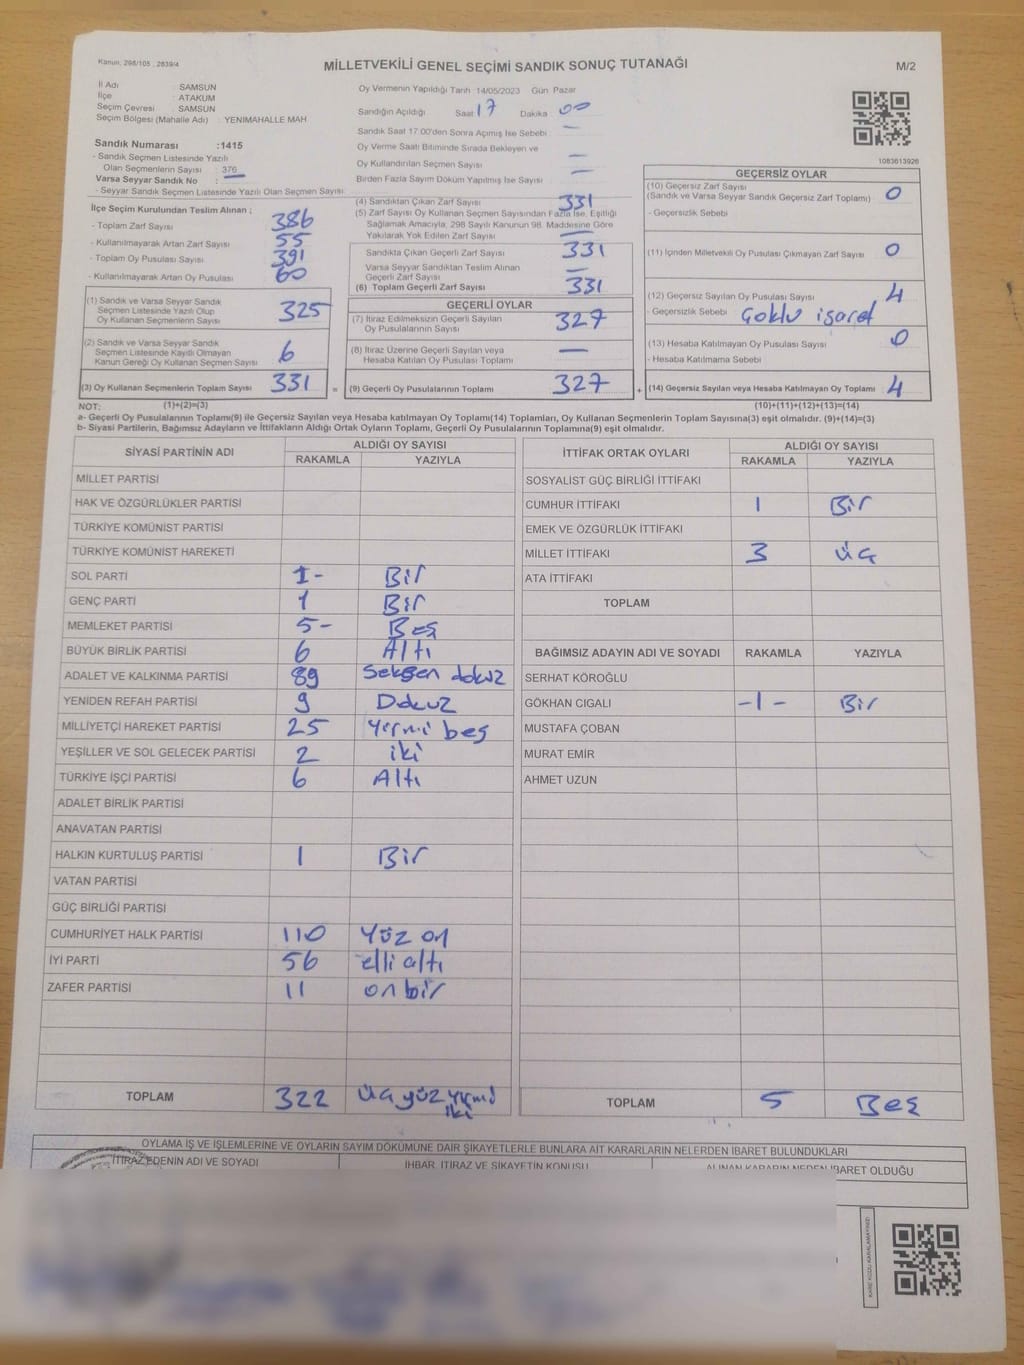 Kanun, 298/105 , 2839/4
MİLLETVEKİLİ GENEL SEÇİMİ SANDIK SONUÇ TUTANAĞI
M/2
İl Adı : SAMSUN
İlçe : ATAKUM
Seçim Çevresi : SAMSUN
Seçim Bölgesi (Mahalle Adı) : YENIMAHALLE MAH
Sandık Numarası :1415
- Sandık Seçmen Listesinde Yazılı
Olan Seçmenlerin Sayısı : 376
Varsa Seyyar Sandık No : —
- Seyyar Sandık Seçmen Listesinde Yazılı Olan Seçmen Sayısı:
Oy Vermenin Yapıldığı Tarih 14/05/2023 Gün Pazar
Sandığın Açıldığı Saat 17 Dakika 00
Sandık Saat 17.00'den Sonra Açımış İse Sebebi —
Oy Verme Saati Bitiminde Sırada Bekleyen ve
Oy Kullandırılan Seçmen Sayısı —
Birden Fazla Sayım Döküm Yapılmış İse Sayısı —
1083613926
İlçe Seçim Kurulundan Teslim Alınan ;
- Toplam Zarf Sayısı 386
- Kullanılmayarak Artan Zarf Sayısı 55
- Toplam Oy Pusulası Sayısı 391
- Kullanılmayarak Artan Oy Pusulası 60
(1) Sandık ve Varsa Seyyar Sandık
Seçmen Listesinde Yazılı Olup
Oy Kullanan Seçmenlerin Sayısı 325
(2) Sandık ve Varsa Seyyar Sandık
Seçmen Listesinde Kayıtlı Olmayan
Kanun Gereği Oy Kullanan Seçmen Sayısı 6
(3) Oy Kullanan Seçmenlerin Toplam Sayısı 331 =
(4) Sandıktan Çıkan Zarf Sayısı 331
(5) Zarf Sayısı Oy Kullanan Seçmen Sayısından Fazla İse, Eşitliği
Sağlamak Amacıyla, 298 Sayılı Kanunun 98. Maddesine Göre
Yakılarak Yok Edilen Zarf Sayısı —
Sandıkta Çıkan Geçerli Zarf Sayısı 331
Varsa Seyyar Sandıktan Teslim Alınan
Geçerli Zarf Sayısı —
(6) Toplam Geçerli Zarf Sayısı 331
GEÇERLİ OYLAR
(7) İtiraz Edilmeksizin Geçerli Sayılan
Oy Pusulalarının Sayısı 327
(8) İtiraz Üzerine Geçerli Sayılan veya
Hesaba Katılan Oy Pusulası Toplamı —
(9) Geçerli Oy Pusulalarının Toplamı 327 +
GEÇERSİZ OYLAR
(10) Geçersiz Zarf Sayısı
(Sandık ve Varsa Seyyar Sandık Geçersiz Zarf Toplamı) 0
- Geçersizlik Sebebi
(11) İçinden Milletvekili Oy Pusulası Çıkmayan Zarf Sayısı 0
(12) Geçersiz Sayılan Oy Pusulası Sayısı 4
- Geçersizlik Sebebi Çoklu işaret
(13) Hesaba Katılmayan Oy Pusulası Sayısı 0
- Hesaba Katılmama Sebebi
(14) Geçersiz Sayılan veya Hesaba Katılmayan Oy Toplamı 4
NOT: (1)+(2)=(3) (10)+(11)+(12)+(13)=(14)
a- Geçerli Oy Pusulalarının Toplamı(9) ile Geçersiz Sayılan veya Hesaba katılmayan Oy Toplamı(14) Toplamları, Oy Kullanan Seçmenlerin Toplam Sayısına(3) eşit olmalıdır. (9)+(14)=(3)
b- Siyasi Partilerin, Bağımsız Adayların ve İttifakların Aldığı Ortak Oyların Toplamı, Geçerli Oy Pusulalarının Toplamına(9) eşit olmalıdır.
SİYASİ PARTİNİN ADI ALDIĞI OY SAYISI
RAKAMLA YAZIYLA
MİLLET PARTİSİ
HAK VE ÖZGÜRLÜKLER PARTİSİ
TÜRKİYE KOMÜNİST PARTİSİ
TÜRKİYE KOMÜNİST HAREKETİ
SOL PARTİ 1- Bir
GENÇ PARTİ 1 Bir
MEMLEKET PARTİSİ 5- Beş
BÜYÜK BİRLİK PARTİSİ 6 Altı
ADALET VE KALKINMA PARTİSİ 89 Seksen dokuz
YENİDEN REFAH PARTİSİ 9 Dokuz
MİLLİYETÇİ HAREKET PARTİSİ 25 Yirmi beş
YEŞİLLER VE SOL GELECEK PARTİSİ 2 iki
TÜRKİYE İŞÇİ PARTİSİ 6 Altı
ADALET BİRLİK PARTİSİ
ANAVATAN PARTİSİ
HALKIN KURTULUŞ PARTİSİ 1 Bir
VATAN PARTİSİ
GÜÇ BİRLİĞİ PARTİSİ
CUMHURİYET HALK PARTİSİ 110 Yüz on
İYİ PARTİ 56 elli altı
ZAFER PARTİSİ 11 onbir
TOPLAM 322 Üçyüz yirmi
iki
İTTİFAK ORTAK OYLARI ALDIĞI OY SAYISI
RAKAMLA YAZIYLA
SOSYALİST GÜÇ BİRLİĞİ İTTİFAKI
CUMHUR İTTİFAKI 1 Bir
EMEK VE ÖZGÜRLÜK İTTİFAKI
MİLLET İTTİFAKI 3 üç
ATA İTTİFAKI
TOPLAM
BAĞIMSIZ ADAYIN ADI VE SOYADI RAKAMLA YAZIYLA
SERHAT KÖROĞLU
GÖKHAN CIGALI -1- Bir
MUSTAFA ÇOBAN
MURAT EMİR
AHMET UZUN
TOPLAM 5 Beş
OYLAMA İŞ VE İŞLEMLERİNE VE OYLARIN SAYIM DÖKÜMÜNE DAİR ŞİKAYETLERLE BUNLARA AİT KARARLARIN NELERDEN İBARET BULUNDUKLARI
İTİRAZ EDENİN ADI VE SOYADI İHBAR, İTİRAZ VE ŞİKAYETİN KONUSU ALINAN KARARIN NEDEN İBARET OLDUĞU